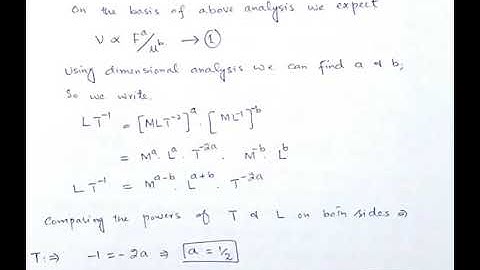 On the basis of above analysis we expect
V ∝ F^a/μ^b → ①
Using dimensional analysis we can find a & b,
So we write
LT^-1 = [MLT^-2]^a . [ML^-1]^-b
= M^a . L^a . T^-2a . M^-b . L^b
LT^-1 = M^a-b . L^a+b . T^-2a
Comparing the powers of T & L on both sides ⇒
T: ⇒ -1 = -2a ⇒ a = 1/2